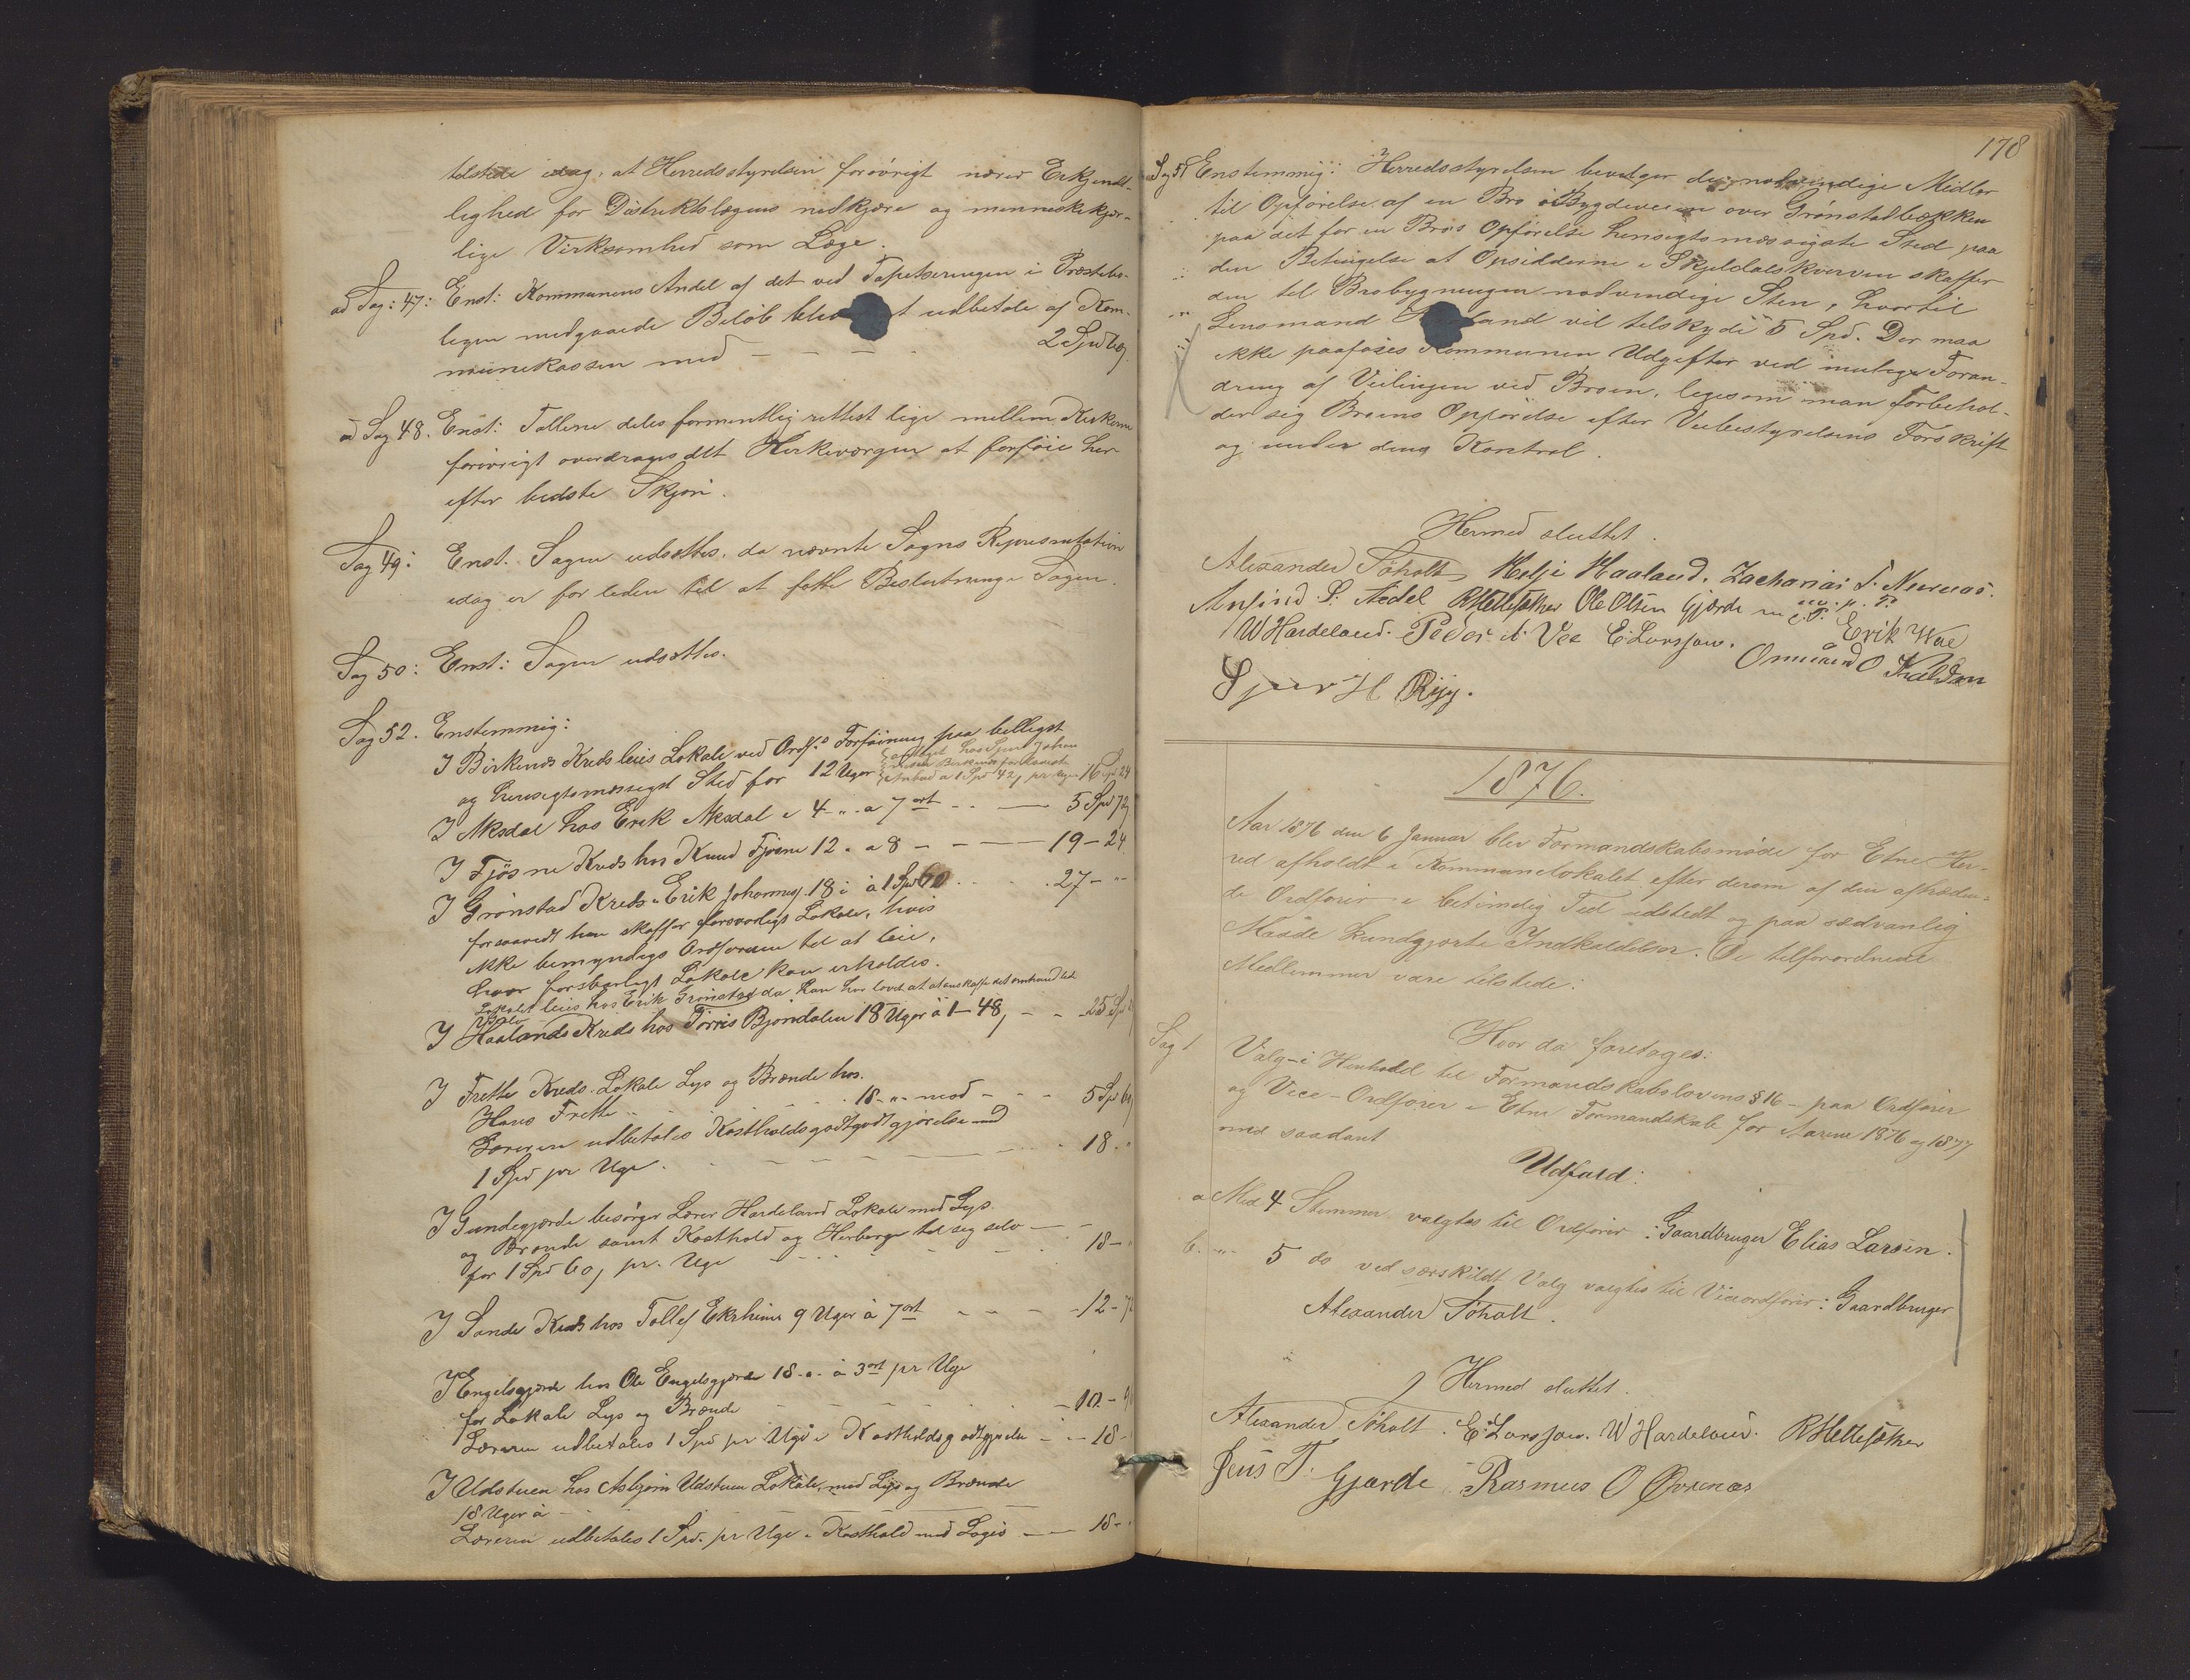 tilstede idag, at Herredsstyrelsen forøvrigt nærer Erkjendt-
lighed for Distriktslægens nidkjære og menneskekjær-
lige Virksomhed som Læge.
ad Sag: 47: Enst: Kommunens Andel af det ved Tapetseringen i Præstebo-
ligen medgaaede Beløb udbetale af Kom-
munekassen med - - - - 2 Spd 60
ad Sag 48. Enst: Tallene deles formentlig rettest lige mellem Kirkerne
forøvrigt overdrages dtt Kirkeværgen at forføie her-
efter bedste Skjøn.
Sag 49: Enst. Sagen udsættes, da nævnte Sogns Representation
idag er for liden til at fatte Beslutning i Sagen.
Sag 50: Enst: Sagen udsættes.
Sag 52. Enstemmig:
I Birkenes Kreds leies Lokale ved Ordf:s Forføining paa billigst
og hensigtsmæssigst Sted for 12 Uger 16 Spd 24
I Aksdal hos Erik Aksdal i 4 " a 7 ort - - 5 Spd 72
I Fjøsne Kreds hos Knud Fjøsne 12 " a 8 - - - 19 - 24
I Grønstad Kreds Erik Johannes. 18 i à 1 Spd 60 . . . 27 - "
forsaavidt han skaffer forsvarligt Lokale, hvis
ikke bemyndiges Ordføreren til at leie,
hvor forsvarligt Lokale kan erholdes.
Lokalet leies hos Erik Grønstad da han har lovet at anskaffe det
I Haalands Kreds hos Tørris Bjøndalen 18 Uger à 1 - 48, - - 25 Spd
I Frette Kreds. Lokale Lys og Brænde hos.
Hans Frette - - - 18 " mod - - - 5 Spd 60
Læreren udbetales Kostholdsgodtgjørelse med
1 Spd pr Uge. - - - 18 "
I Gundegjærde besørger Lærer Hardeland Lokale med Lys
og Brænde samt Kosthold og Herberge til sig selv - -
for 1 Spd 60, pr. Uge - - - 18 -
I Sande Kreds hos Tollef Ekrheim 9 Uger à 7 ort - - - 12 - 72
I Engelsgjærde hos Ole Engelsgjærde 18 " à 3 ort pr Uge
for Lokale Lys og Brænde - - - 10 -
Læreren udbetales 1 Spd pr Uge i Kostholdsgodtgjørelse - - 18 -
I Udstuen hos Asbjørn Udstuen Lokale, med Lys og Brænde
18 Uger à -
Læreren udbetales 1 Spd. pr Uge i Kosthold med Logis - - 18 -
178
Enstemmig: Herredsstyrelsen bevilger de nødvendige Midler
til Opførelse af en Bro i Bygdeveien over Grønstadbækken
paa det for en Bros Opførelse hensigtsmæssigste Sted paa
den Betingelse at Opsidderne i Skjeldalskverven skaffer
den til Brobygningen nødvendige Sten, hvortil
Lensmand Haaland vil tilskyde 5 Spd. Der maa
ikke paaføres Kommunen Udgifter ved mulige Foran-
dring af Veilinjen ved Broen, ligesom man forbehol-
der sig Broens Opførelse efter Veibestyrelsens Forskrift
og under dens Kontrol.
Hermed sluttet.
Alexander Søholt Helje Haaland. Zacharias
Anfind S. Aedel RHettesæther Ole Olsen Gjærde m. p. P.
WHardeland. Peder A. Vee E. Larssøn. Erik Wae
Omund O
Sjur H. Ryg.
1876.
Aar 1876 den 6 Januar blev Formandskabsmøde for Etne Her-
red afholdt i Kommunelokalet efter derom af den aftræden-
de Ordfører i betimelig Tid udstedt og paa sædvanlig
Maade kundgjorte Indkaldelser. De tilforordnede
Medlemmer vare tilstede:
Hvor da foretoges:
Sag 1 Valg - i Henhold til Formandskabslovens § 16 - paa Ordfører
og Vice-Ordfører i Etne Formandskab for Aarene 1876 og 1877
med saadant
Udfald:
a Med 4 Stemmer valgtes til Ordfører: Gaardbruger Elias Larsen.
b. " 5 do ved særskildt Valg valgtes til Viceordfører: Gaardbruger
Alexander Søholt.
Hermed sluttet.
Alexander Søholt. E. Larssøn. W Hardeland. RHettesæther
Jens T. Gjærde Rasmus O Øvrenæs